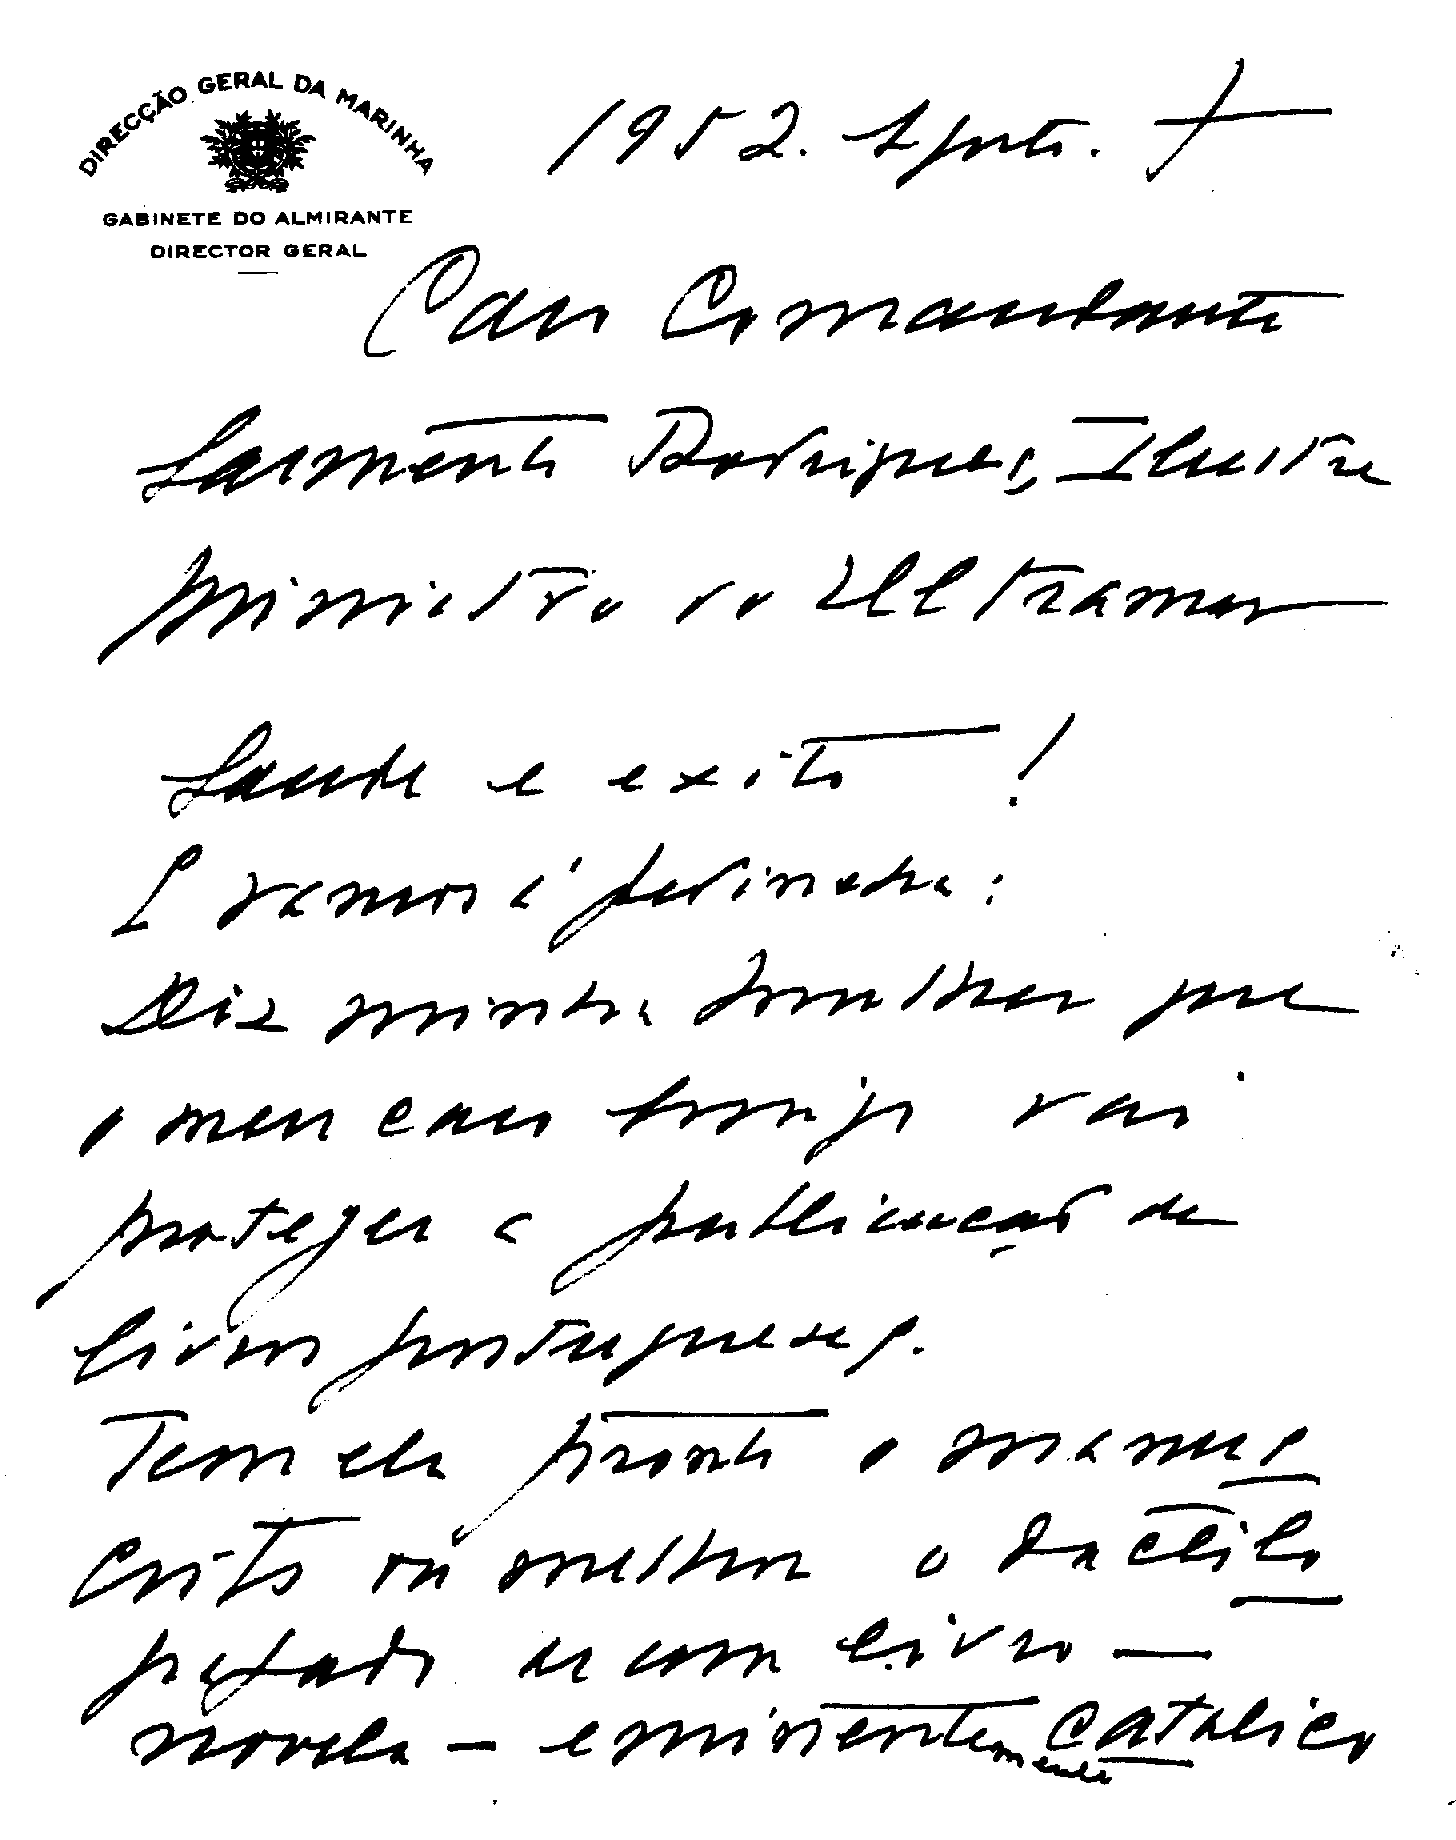 DIRECÇÃO GERAL DA MARINHA
GABINETE DO ALMIRANTE
DIRECTOR GERAL
1952. Agosto. 7
Caro Comandante
Sarmento Rodrigues, Ilustre
Ministro do Ultramar
Saude e exito!
E vamos á
Diz minha mulher que
o meu caro amigo vai
proteger a publicação de
livros portugueses.
Tem ela pronto o manus
crito ou melhor o dactilo
grafado de um livro —
novela — eminentemente catolico